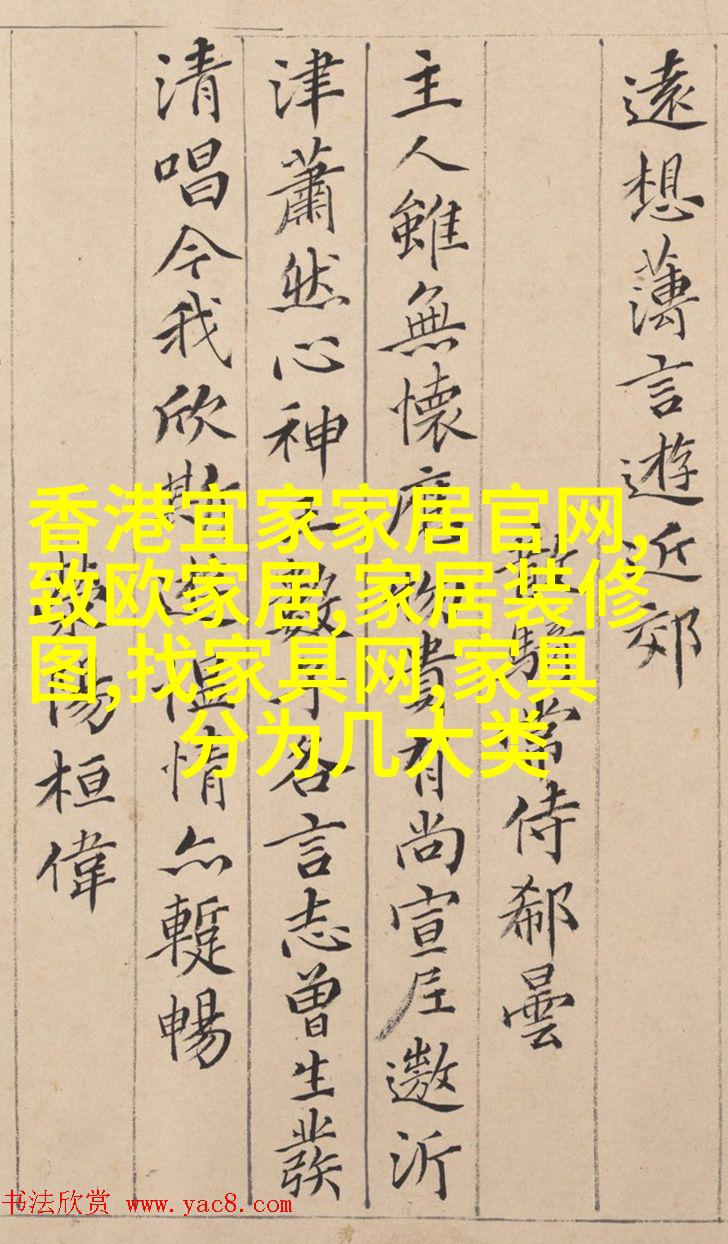 遠想薄言遊近郊
散騎常侍郗曇
主人雖無懷應物貴有尚宣尼遨沂
津蕭然心神王數子各言志曾生發
清唱今我欣斯遊愠情亦蹔暢
陽桓偉
香港宜家家居官网,
致欧家居,家居装修
图,找家具网,家具
分为几大类
书法欣赏 www.yac8.com